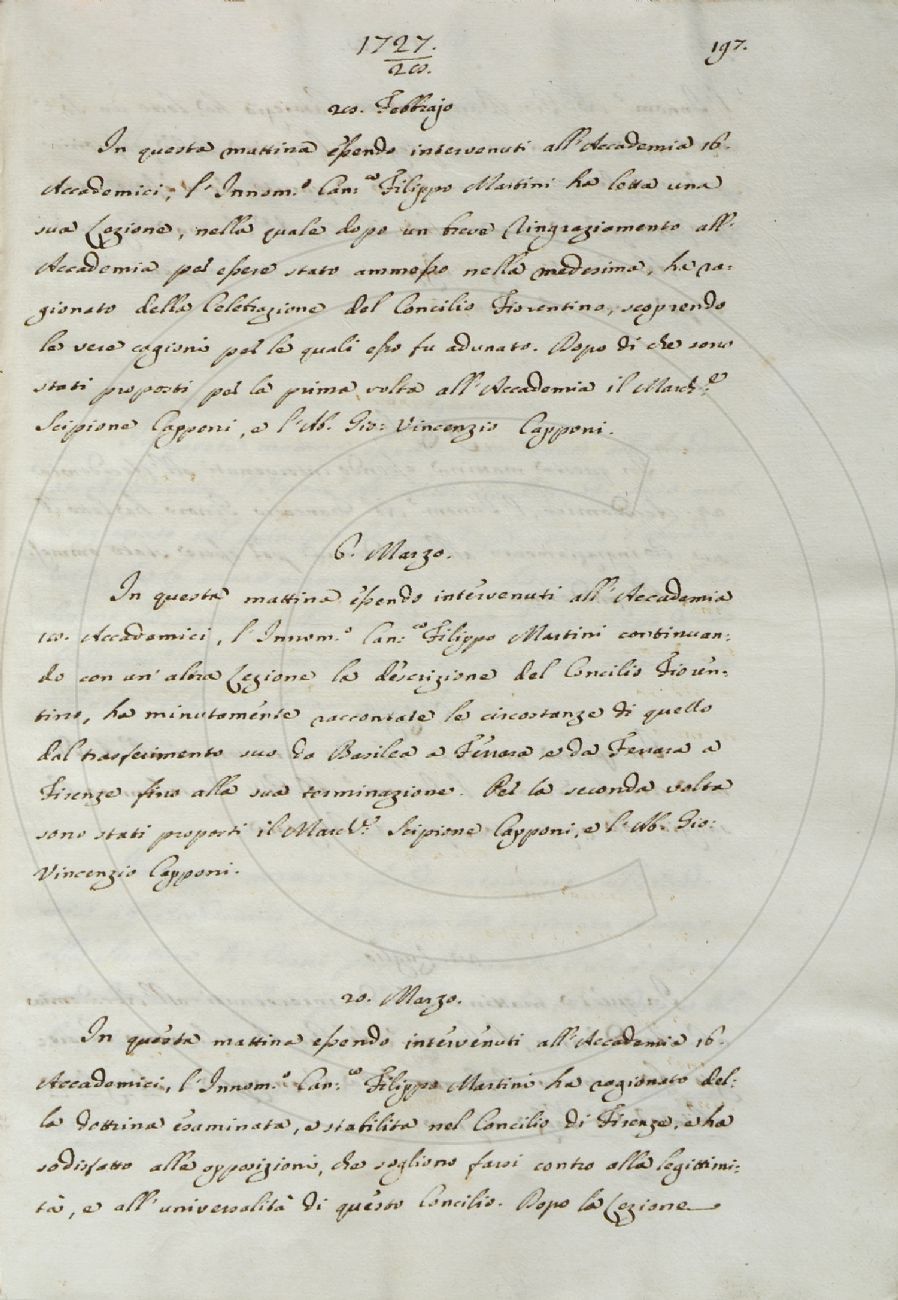 1727. 197.
28.
20. Febbrajo
In questa mattina essendo intervenuti all'Accademia 16.
Accademici, l'Innom.º Can.co Filippo Martini ha letta una
sua Lezione, nella quale dopo un breve Ringraziamento all'
Accademia per essere stato ammesso nella medesima, ha ra:
gionato della Celebrazione del Concilio Fiorentino, scoprendo
le vere cagioni per le quali esso fu adunato. Dopo di che sono
stati proposti per la prima volta all'Accademia il March.e
Scipione Capponi, e l'Ab. Gio: Vincenzio Capponi.
6. Marzo.
In questa mattina essendo intervenuti all'Accademia
10. Accademici, l'Innom.º Can.co Filippo Martini continuan:
do con un'altra Lezione la descrizione del Concilio Fioren:
tino, ha minutamente raccontate le circostanze di quello
dal trasferimento suo da Basilea a Ferrara e da Ferrara a
Firenze fino alla sua terminazione. Per la seconda volta
sono stati proposti il March.e Scipione Capponi, e l'Ab. Gio:
Vincenzio Capponi.
20. Marzo.
In questa mattina essendo intervenuti all'Accademia 16.
Accademici, l'Innom.º Can.co Filippo Martini ha ragionato del:
la dottrina esaminata, e stabilita nel Concilio di Firenze, e ha
sodisfatto alle opposizioni, che sogliono farsi contro alla legittimi:
tà, e all'universalità di questo Concilio. Dopo la Lezione